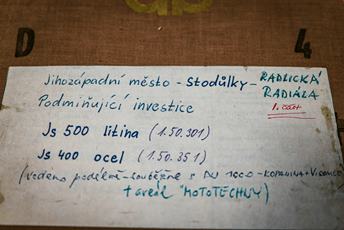 D 4
Jihozápadní město - Stodůlky - RADLICKÁ
RADIÁLA
Podmiňující investice
1. část
Js 500 litina (1.50.301)
Js 400 ocel (1.50.351)
(vedeno podélně - souběžně s DN 1000 - KOPANINA +
+ areál "MOTOTECHNY)